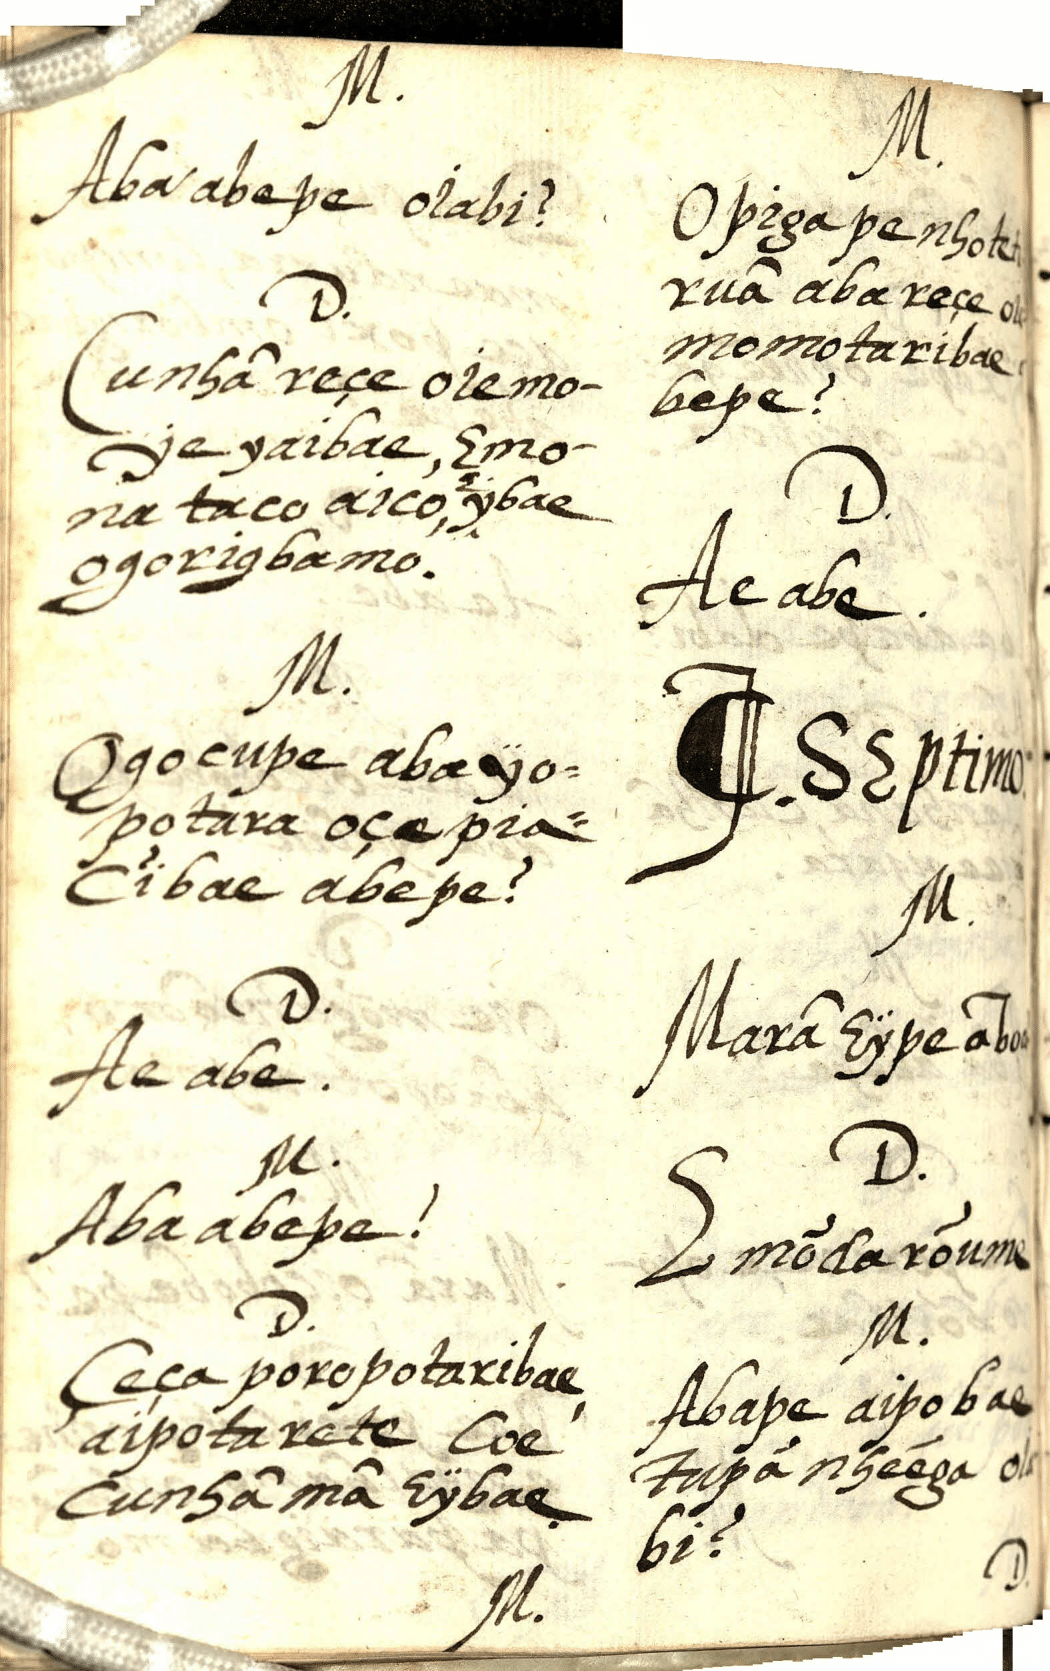 M.
Aba abepe oiabi?
D.
Cunhâ reçe oiemo-
je yaibae, Emo-
na taco aico, eÿbae
ogorigbamo.
M.
Ogocupe aba ÿo=
potara oçe pia=
cibae abepe?
D.
Ae abe.
M.
Aba abepe?
D.
Ceça poropotaribae,
aipotarete Coe
cunhâ mâ Eÿbae.
M.
M.
Opiga pe nhote
ruâ aba reçe
momotaribae
bepe?
D.
Ae abe.
¶. SEptimo
M.
Marâ Eÿpe
D.
E mõda rõume
M.
Abape aipobae
tupá nheéga
bi?
D.